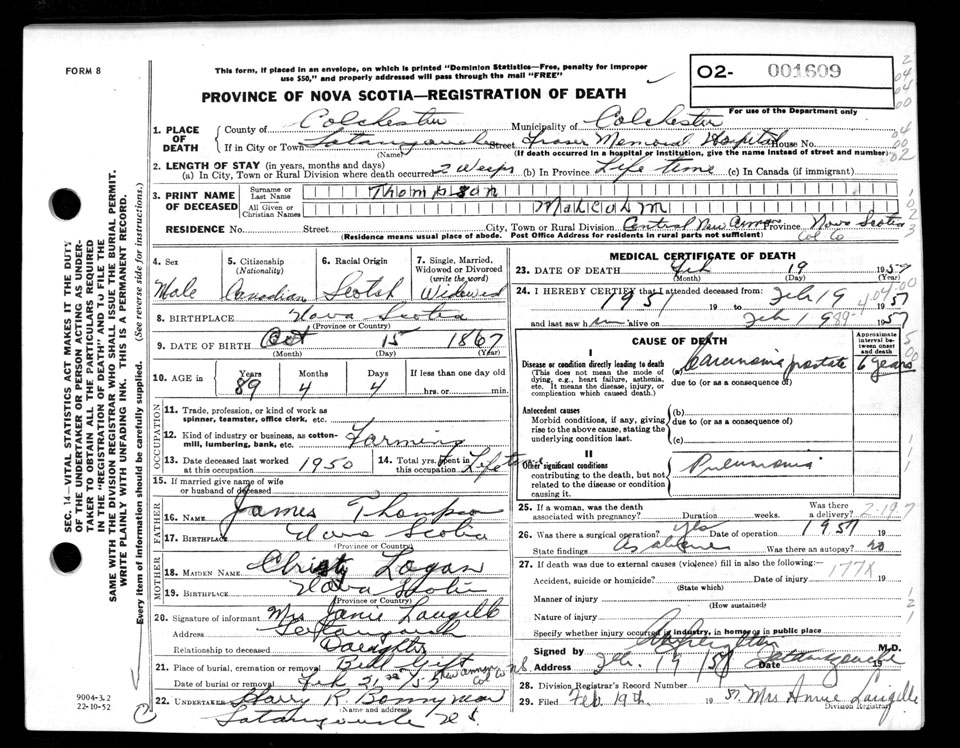 FORM 8
This form, if placed in an envelope, on which is printed "Dominion Statistics—Free, penalty for improper
use $50," and properly addressed will pass through the mail "FREE"
O2- 001609
For use of the Department only
PROVINCE OF NOVA SCOTIA—REGISTRATION OF DEATH
1. PLACE OF DEATH
County of Colchester Municipality of Colchester
If in City or Town Tatamagouche Street Fraser Memorial Hospital House No.
(Name) (If death occurred in a hospital or institution, give the name instead of street and number)
2. LENGTH OF STAY (in years, months and days)
(a) In City, Town or Rural Division where death occurred 2 Weeks (b) In Province Life time (c) In Canada (if immigrant)
3. PRINT NAME OF DECEASED
Surname or Last Name Thompson
All Given or Christian Names Malcolm
RESIDENCE No. Street City, Town or Rural Division Central New Annan Province Nova Scotia
(Residence means usual place of abode. Post Office Address for residents in rural parts not sufficient) Col Co
SEC. 14—VITAL STATISTICS ACT MAKES IT THE DUTY
OF THE UNDERTAKER OR PERSON ACTING AS UNDER-
TAKER TO OBTAIN ALL THE PARTICULARS REQUIRED
IN THE "REGISTRATION OF DEATH" AND TO FILE THE
SAME WITH THE DIVISION REGISTRAR WHO SHALL ISSUE THE BURIAL PERMIT.
WRITE PLAINLY WITH UNFADING INK. THIS IS A PERMANENT RECORD.
Every item of information should be carefully supplied. (See reverse side for instructions.)
4. Sex Male
5. Citizenship (Nationality) Canadian
6. Racial Origin Scotsh
7. Single, Married, Widowed or Divorced (write the word) Widowed
8. BIRTHPLACE Nova Scotia
(Province or Country)
9. DATE OF BIRTH Oct 15 1867
(Month) (Day) (Year)
10. AGE in Years Months Days If less than one day old
89 4 4 hrs. or min.
OCCUPATION
11. Trade, profession, or kind of work as
spinner, teamster, office clerk, etc.
12. Kind of industry or business, as cotton-
mill, lumbering, bank, etc. Farming
13. Date deceased last worked
at this occupation 1950
14. Total yrs. spent in
this occupation Life time
15. If married give name of wife
or husband of deceased
FATHER
16. NAME James Thompson
17. BIRTHPLACE Nova Scotia
(Province or Country)
MOTHER
18. MAIDEN NAME Christy Logan
19. BIRTHPLACE Nova Scotia
(Province or Country)
20. Signature of informant Mrs Janie Langille
Address Tatamagouche
Relationship to deceased Daughter
21. Place of burial, cremation or removal Bell Gift
Date of burial or removal Feb 21 New Annan Col Co N.S.
22. UNDERTAKER Harry R. Bonnyman
(Name and address)
Tatamagouche N.S.
9004-3.2
22-10-52
MEDICAL CERTIFICATE OF DEATH
23. DATE OF DEATH Feb 19 1957
(Month) (Day) (Year)
24. I HEREBY CERTIFY that I attended deceased from:
1951 19 to Feb 19 1957
and last saw him alive on Feb 19 1957
CAUSE OF DEATH
Approximate interval between onset and death
I
Disease or condition directly leading to death
(This does not mean the mode of
dying, e.g., heart failure, asthenia,
etc. It means the disease, injury, or
complication which caused death.)
(a) Carcinoma prostate 6 years
due to (or as a consequence of)
Antecedent causes
Morbid conditions, if any, giving
rise to the above cause, stating the
underlying condition last.
(b)
due to (or as a consequence of)
(c)
II
Other significant conditions
contributing to the death, but not
related to the disease or condition
causing it.
Pneumonia
25. If a woman, was the death
associated with pregnancy? Duration weeks. Was there a delivery?
26. Was there a surgical operation? yes Date of operation 1957 19
State findings As above Was there an autopsy? no
27. If death was due to external causes (violence) fill in also the following:
177X
Accident, suicide or homicide? Date of injury 19
(State which)
Manner of injury
(How sustained)
Nature of injury
Specify whether injury occurred in industry, in home or in public place
Signed by M.D.
Address Feb. 19 57 Date Tatamagouche 19
28. Division Registrar's Record Number
29. Filed Feb 19th 1957 Mrs Annie Langille
Division Registrar